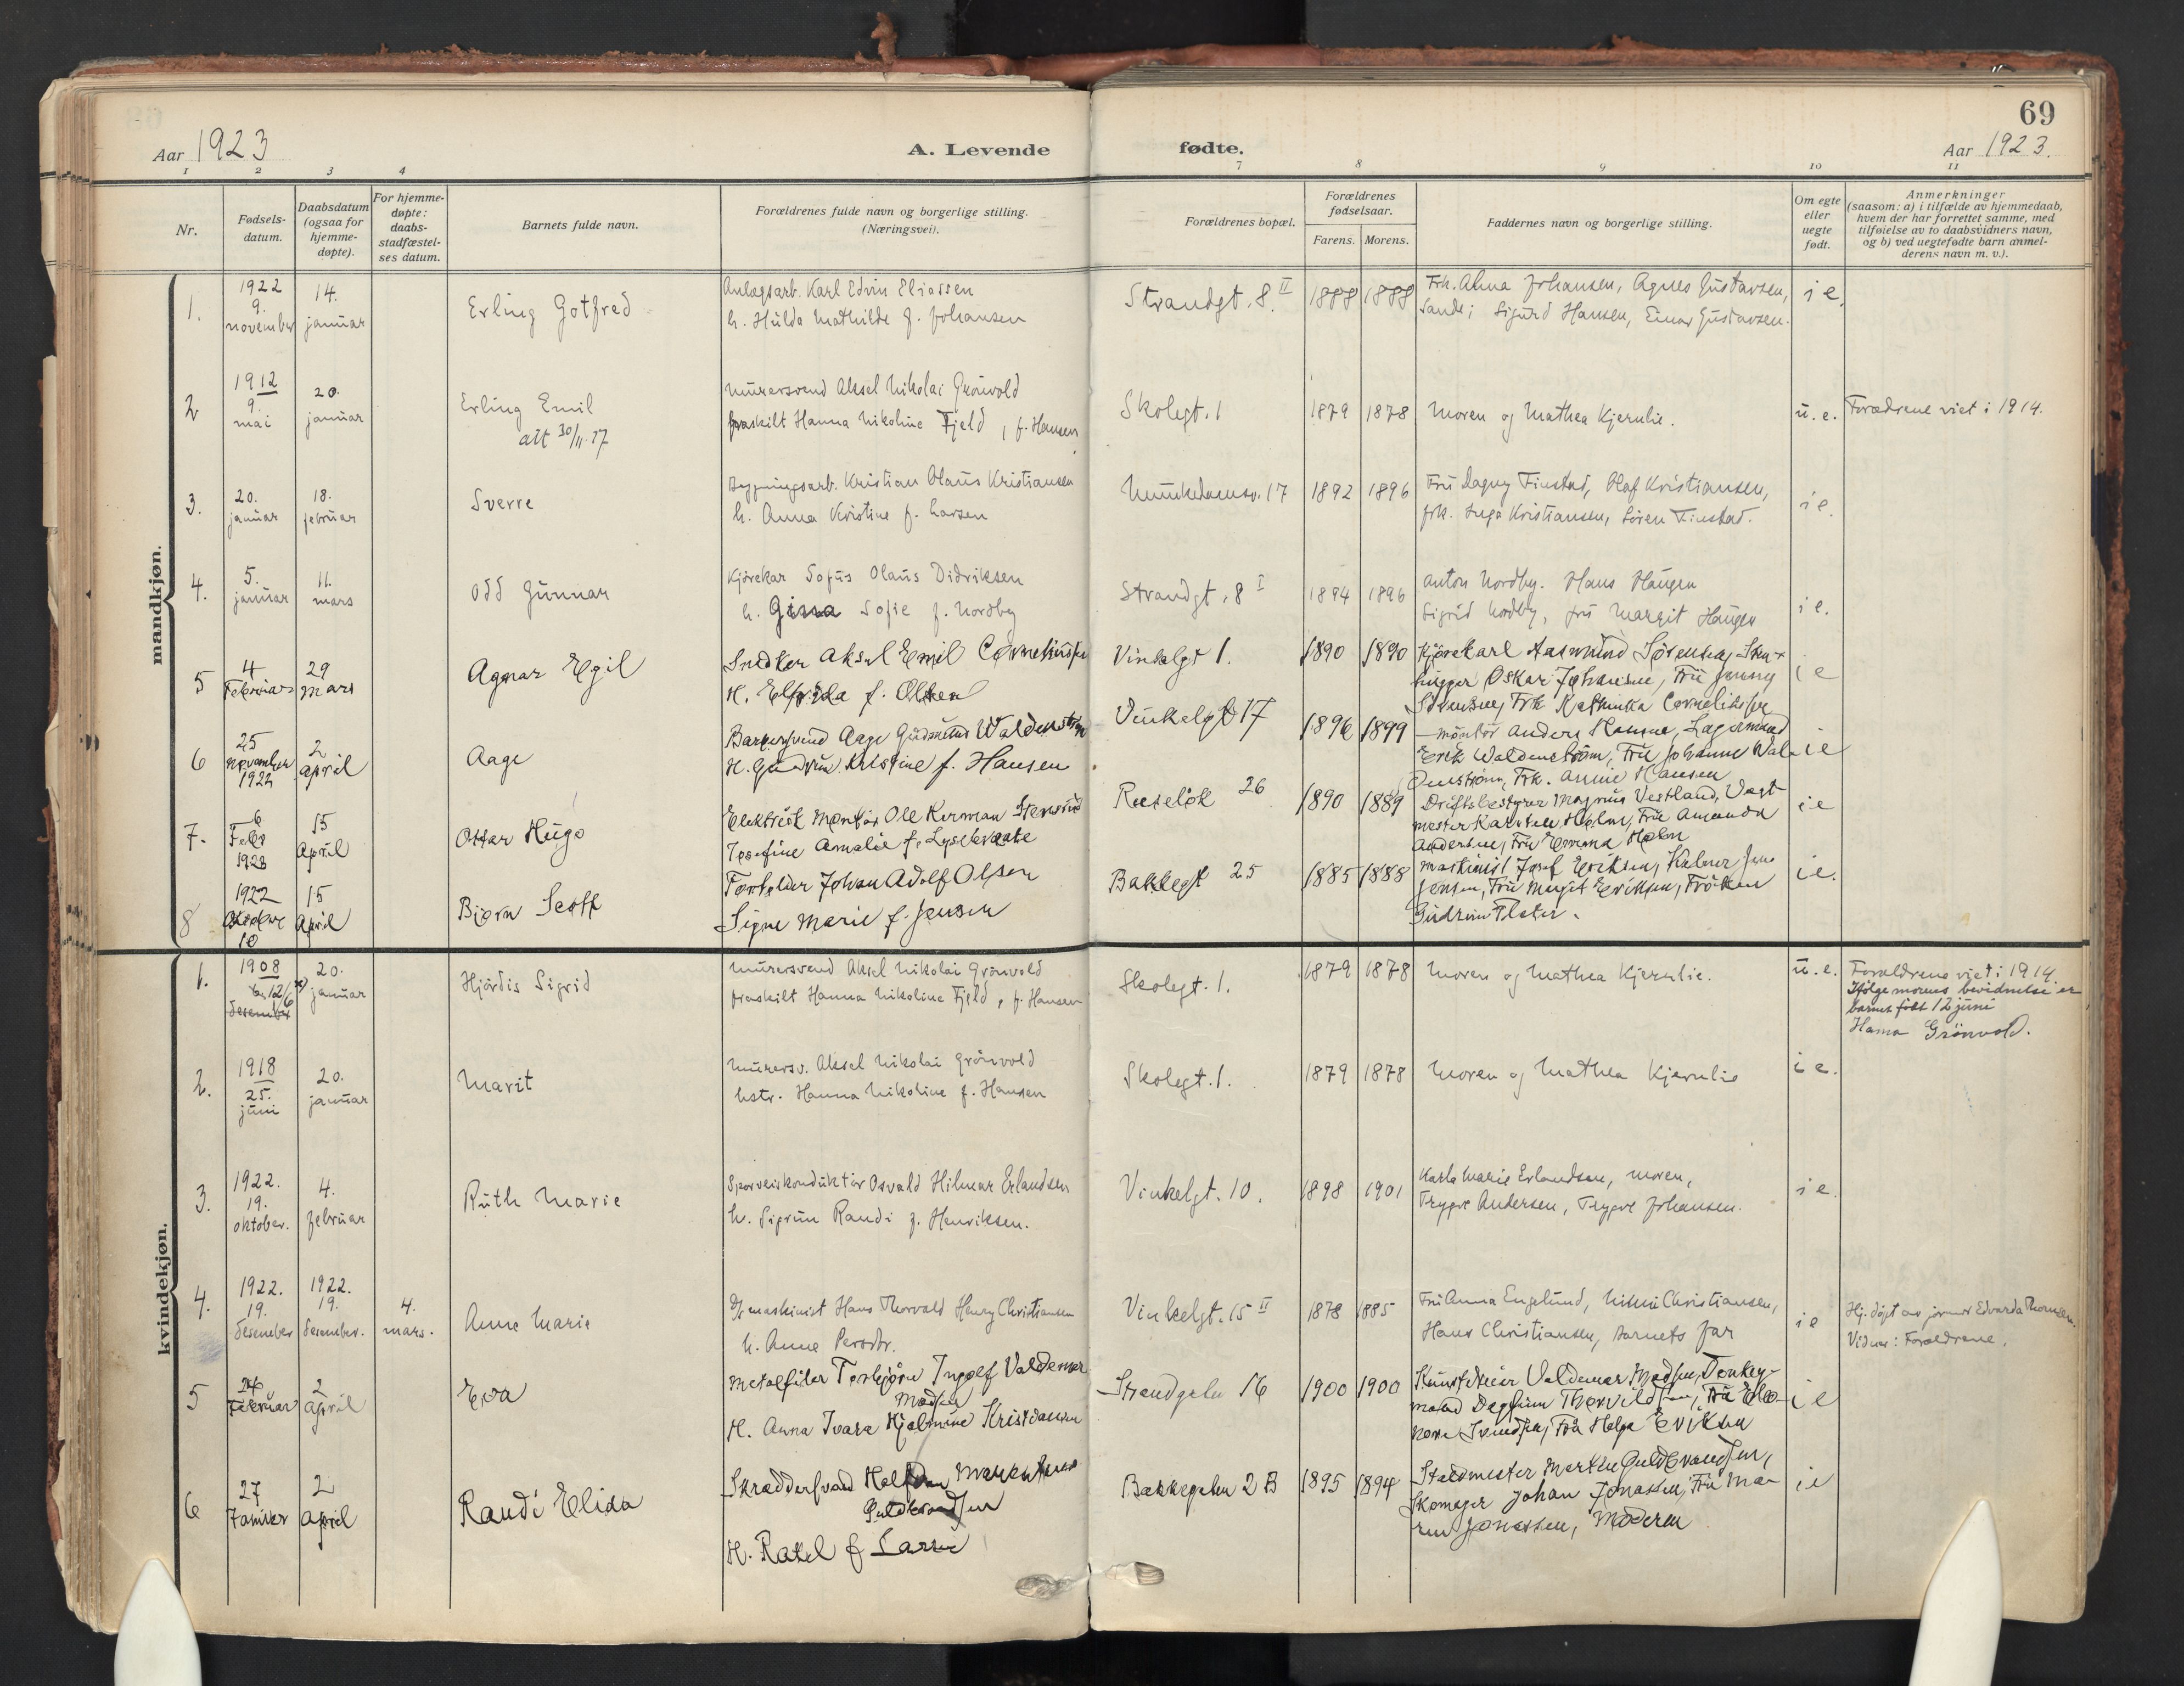 69
Aar 1923
A. Levende
fødte.
Aar 1923.
1 2 3 4
7 8 9 10 11
Nr.
Fødsels-
datum.
Daabsdatum
(ogsaa for
hjemme-
døpte).
For hjemme-
døpte:
daabs-
stadfæstel-
ses datum.
Barnets fulde navn.
Forældrenes fulde navn og borgerlige stilling.
(Næringsvei).
Forældrenes bopæl.
Forældrenes
fødselsaar.
Farens. Morens.
Faddernes navn og borgerlige stilling.
Om egte
eller
uegte
født.
Anmerkninger
(saasom: a) i tilfælde av hjemmedaab,
hvem der har forrettet samme, med
tilføielse av to daabsvidners navn,
og b) ved uegtefødte barn anmel-
derens navn m. v.).
mandkjøn.
1.
1922
9.
november
14.
januar
Erling Gotfred
Anlægsarb. Karl Edvin Eliassen
h. Hulda Mathilde f. Johansen
Strandgt. 8 II
1888 1888
Frk. Alma Johansen, Agnes Gustavsen,
Sande; Sigurd Hansen, Einar Gustavsen.
i e.
2
1912
9.
mai
20.
januar
Erling Emil
alt 30/11.27
Murersvend Aksel Nikolai Grönvold
fraskilt Hanna Nikoline Fjeld, f. Hansen
Skolegt. 1
1879 1878
Moren og Mathea Kjernlie.
u. e.
Forældrene viet i 1914.
3.
20.
januar
18.
februar
Sverre
Bygningsarb. Kristian Olaus Kristiansen
h. Anna Kristine f. Larsen
Munkedamsv. 17
1892 1896
Fru Dagny Finstad, Olaf Kristiansen,
frk. Inga Kristiansen, Søren Finstad.
i e.
4.
5.
januar
11.
mars
Odd Gunnar
Kjörekar Sofus Olaus Didriksen
h. Gina Sofie f. Nordby
Strandgt. 8 I
1894 1896
Anton Nordby. Hans Haugen
Sigrid Nordby, fru Margit Haugen
i e.
5
4
Februar
29
Mars
Agnar Egil
Snedker Aksel Emil Corneliusen
H. Elfrida f. Olsen
Vinkelgt 1.
1890 1890
Kjörekarl Aasmund Sörensen, Sten-
hugger Oskar Johansen, Fru Jenny
Sörensen, Frk Kathinka Corneliussen
i e
6
25
November
1922
2
April
Aage
Barbersvend Aage Gudmund Waldenström
H. Gudrun Kristine f. Hansen
Vinkelgt 17
1896 1899
montör Anders Hansen, Lagermand
Erik Waldenström, Fru Johanne Wal-
denström, Frk. Annie Hansen
i e
7.
6
Febr
1923
15
April
Ottar Hugo
Elektrisk Montör Ole Herman Stensrud
Josefine Amalie f.
Ruseløk 26
1890 1889
Driftsbestyrer Magnus Vestland, Vagt
mester Karsten Holm, Fru Amanda
Andersen, Fru Emma Holm
i e
8
1922
Oktober
10
15
April
Bjørn Scott
Johan Adolf Olsen
Signe Marie f. Jensen
Bakkegt 25
1885 1888
Maskinist Josef Eriksen, Kelner Jens
Jensen, Fru Margit Eriksen, Fröken
Gudrun
i e.
kvindekjøn.
1.
1908
12/6
desember
20.
januar
Hjördis Sigrid
Murersvend Aksel Nikolai Grönvold
fraskilt Hanna Nikoline Fjeld, f. Hansen
Skolegt. 1.
1879 1878
Moren og Mathea Kjernlie.
u. e.
Forældrene viet i 1914
Ifölge morens bevidnelse er
barnet födt 12 juni
Hanna Grönvold.
2.
1918
25.
juni
20.
januar
Marit
Murersv. Aksel Nikolai Grönvold
hstr. Hanna Nikoline f. Hansen
Skolegt. 1.
1879 1878
Moren og Mathea Kjernlie
i e.
3.
1922.
19.
oktober.
4.
februar
Ruth Marie
Sporveiskonduktör Osvald Hilmar Erlandsen
h. Sigrun Randi f. Henriksen.
Vinkelgt. 10.
1898 1901
Karla Marie Erlandsen, moren,
Trygve Andersen, Trygve Johansen.
i e.
4.
1922.
19.
desember
1922.
19.
desember.
4.
mars.
Anne Marie
maskinist Hans Thorvald Henry Christiansen
h. Anne Persdtr.
Vinkelgt. 15 II
1878 1885
Fru Anna Englund, Christiansen,
Hans Christiansen, barnets far
i e
Hj. döpt av jormor Edvarda Thomsen.
Vidner: Forældrene.
5
24
Februar
2
April
Eva
Metalfiler Torbjörn Ingolf Valdemar
Madsen
H. Anna Ivara Hjalmine Kristiansen
Strandgaten 16
1900 1900
Valdemar Madsen, Donkey-
mand Dagfinn Thorvildsen, Fru Eleo-
nora Svendsen, Fru Helga Eriksen
i e
6
27
Januar
2
April
Randi Elida
Skreddersvend Halfdan
Guldbrandsen
H. Rakel f Larsen
Bakkegaten 2 B
1895 1894
Staldmester Martin Guldbrandsen,
Skomager Johan Jonassen, Fru Ma-
ren Jonassen, Moderen
i e